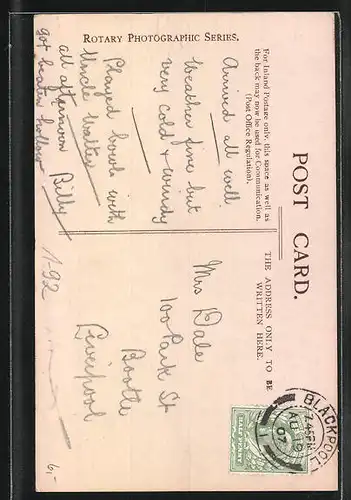 ROTARY PHOTOGRAPHIC SERIES.
POST CARD.
For Inland Postage only, this space as well as
the back may now be used for Communication.
(Post Office Regulation).
THE ADDRESS ONLY TO BE
WRITTEN HERE.
Arrived all well.
Weather fine but
very cold & windy
Played bowls with
Uncle Walter
all afternoon Billy
got beaten hollow
Mrs Dale
100 Park St
Bootle
Liverpool
BLACKPOOL
7.45 PM
AU 19
07
HALF PENNY
11-92
6,-